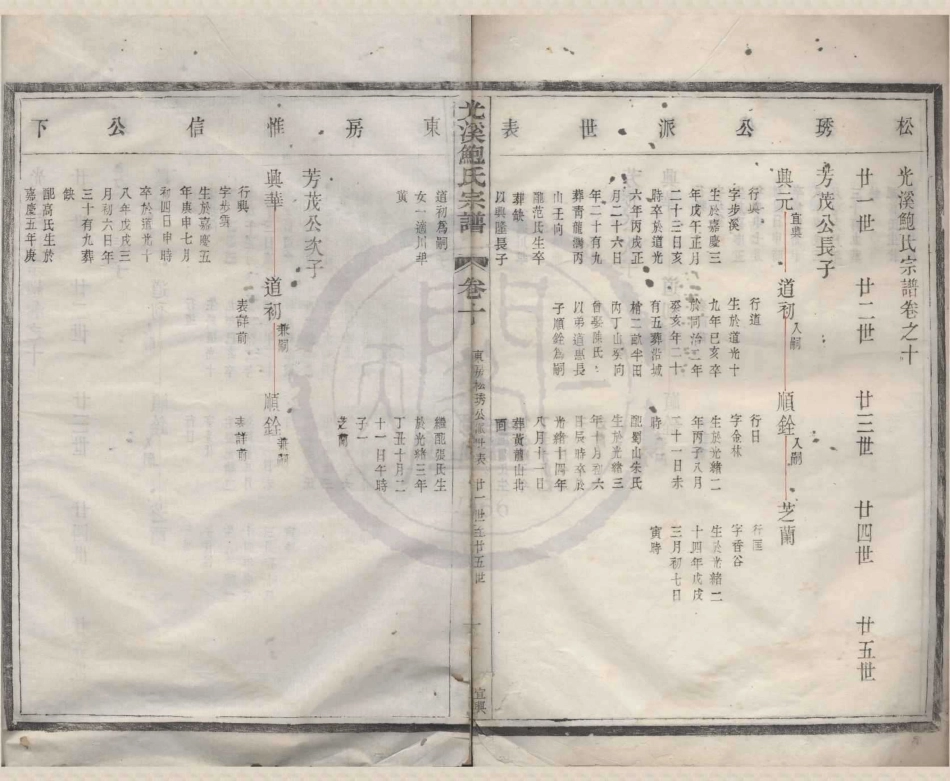 松琇公派世表
東房惟信公下
光溪鮑氏宗譜卷之十
廿一世
廿二世
廿三世
廿四世
廿五世
芳茂公長子
典元
宜興
行興
字步溪
生於嘉慶三
年戊午正月
二十三日亥
時卒於道光
六年丙戌正
月二十六日
年二十有九
葬青龍崗丙
山壬向
配范氏生卒
葬缺
以興隆長子
道初爲嗣
女一適川埠
黃
道初
入嗣
行道
生於道光十
九年己亥卒
於同治二年
癸亥年二十
有五葬沿城
丙丁山癸向
曾娶陳氏
以弟道惠長
子順銓爲嗣
順銓
入嗣
行日
字金林
生於光緒二
年丙子八月
二十一日未
時
配蜀山朱氏
生於光緒三
年十月初六
日辰時卒於
光緒十四年
八月十一日
葬黃龍山北
面
繼配張氏生
於光緒三年
丁丑十月二
十一日午時
子一
芝蘭
芝蘭
行匯
字香谷
生於光緒二
十四年戊戌
三月初七日
寅時
芳茂公次子
興華
行興
生於嘉慶五
年庚申七月
初四日申時
卒於道光十
八年戊戌三
月初六日年
三十有九葬
缺
配高氏生於
嘉慶五年庚
道初
兼嗣
表詳前
順銓
兼嗣
表詳前
光溪鮑氏宗譜
卷十
東房松琇公派世表
廿一世至廿五世
一
宜興